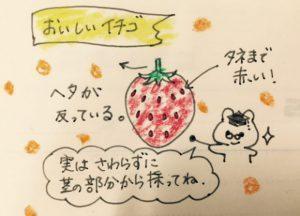 おいしいイチゴ
タネまで
赤い!
ヘタが
反っている。
実は さわらずに
茎の部分から採ってね.